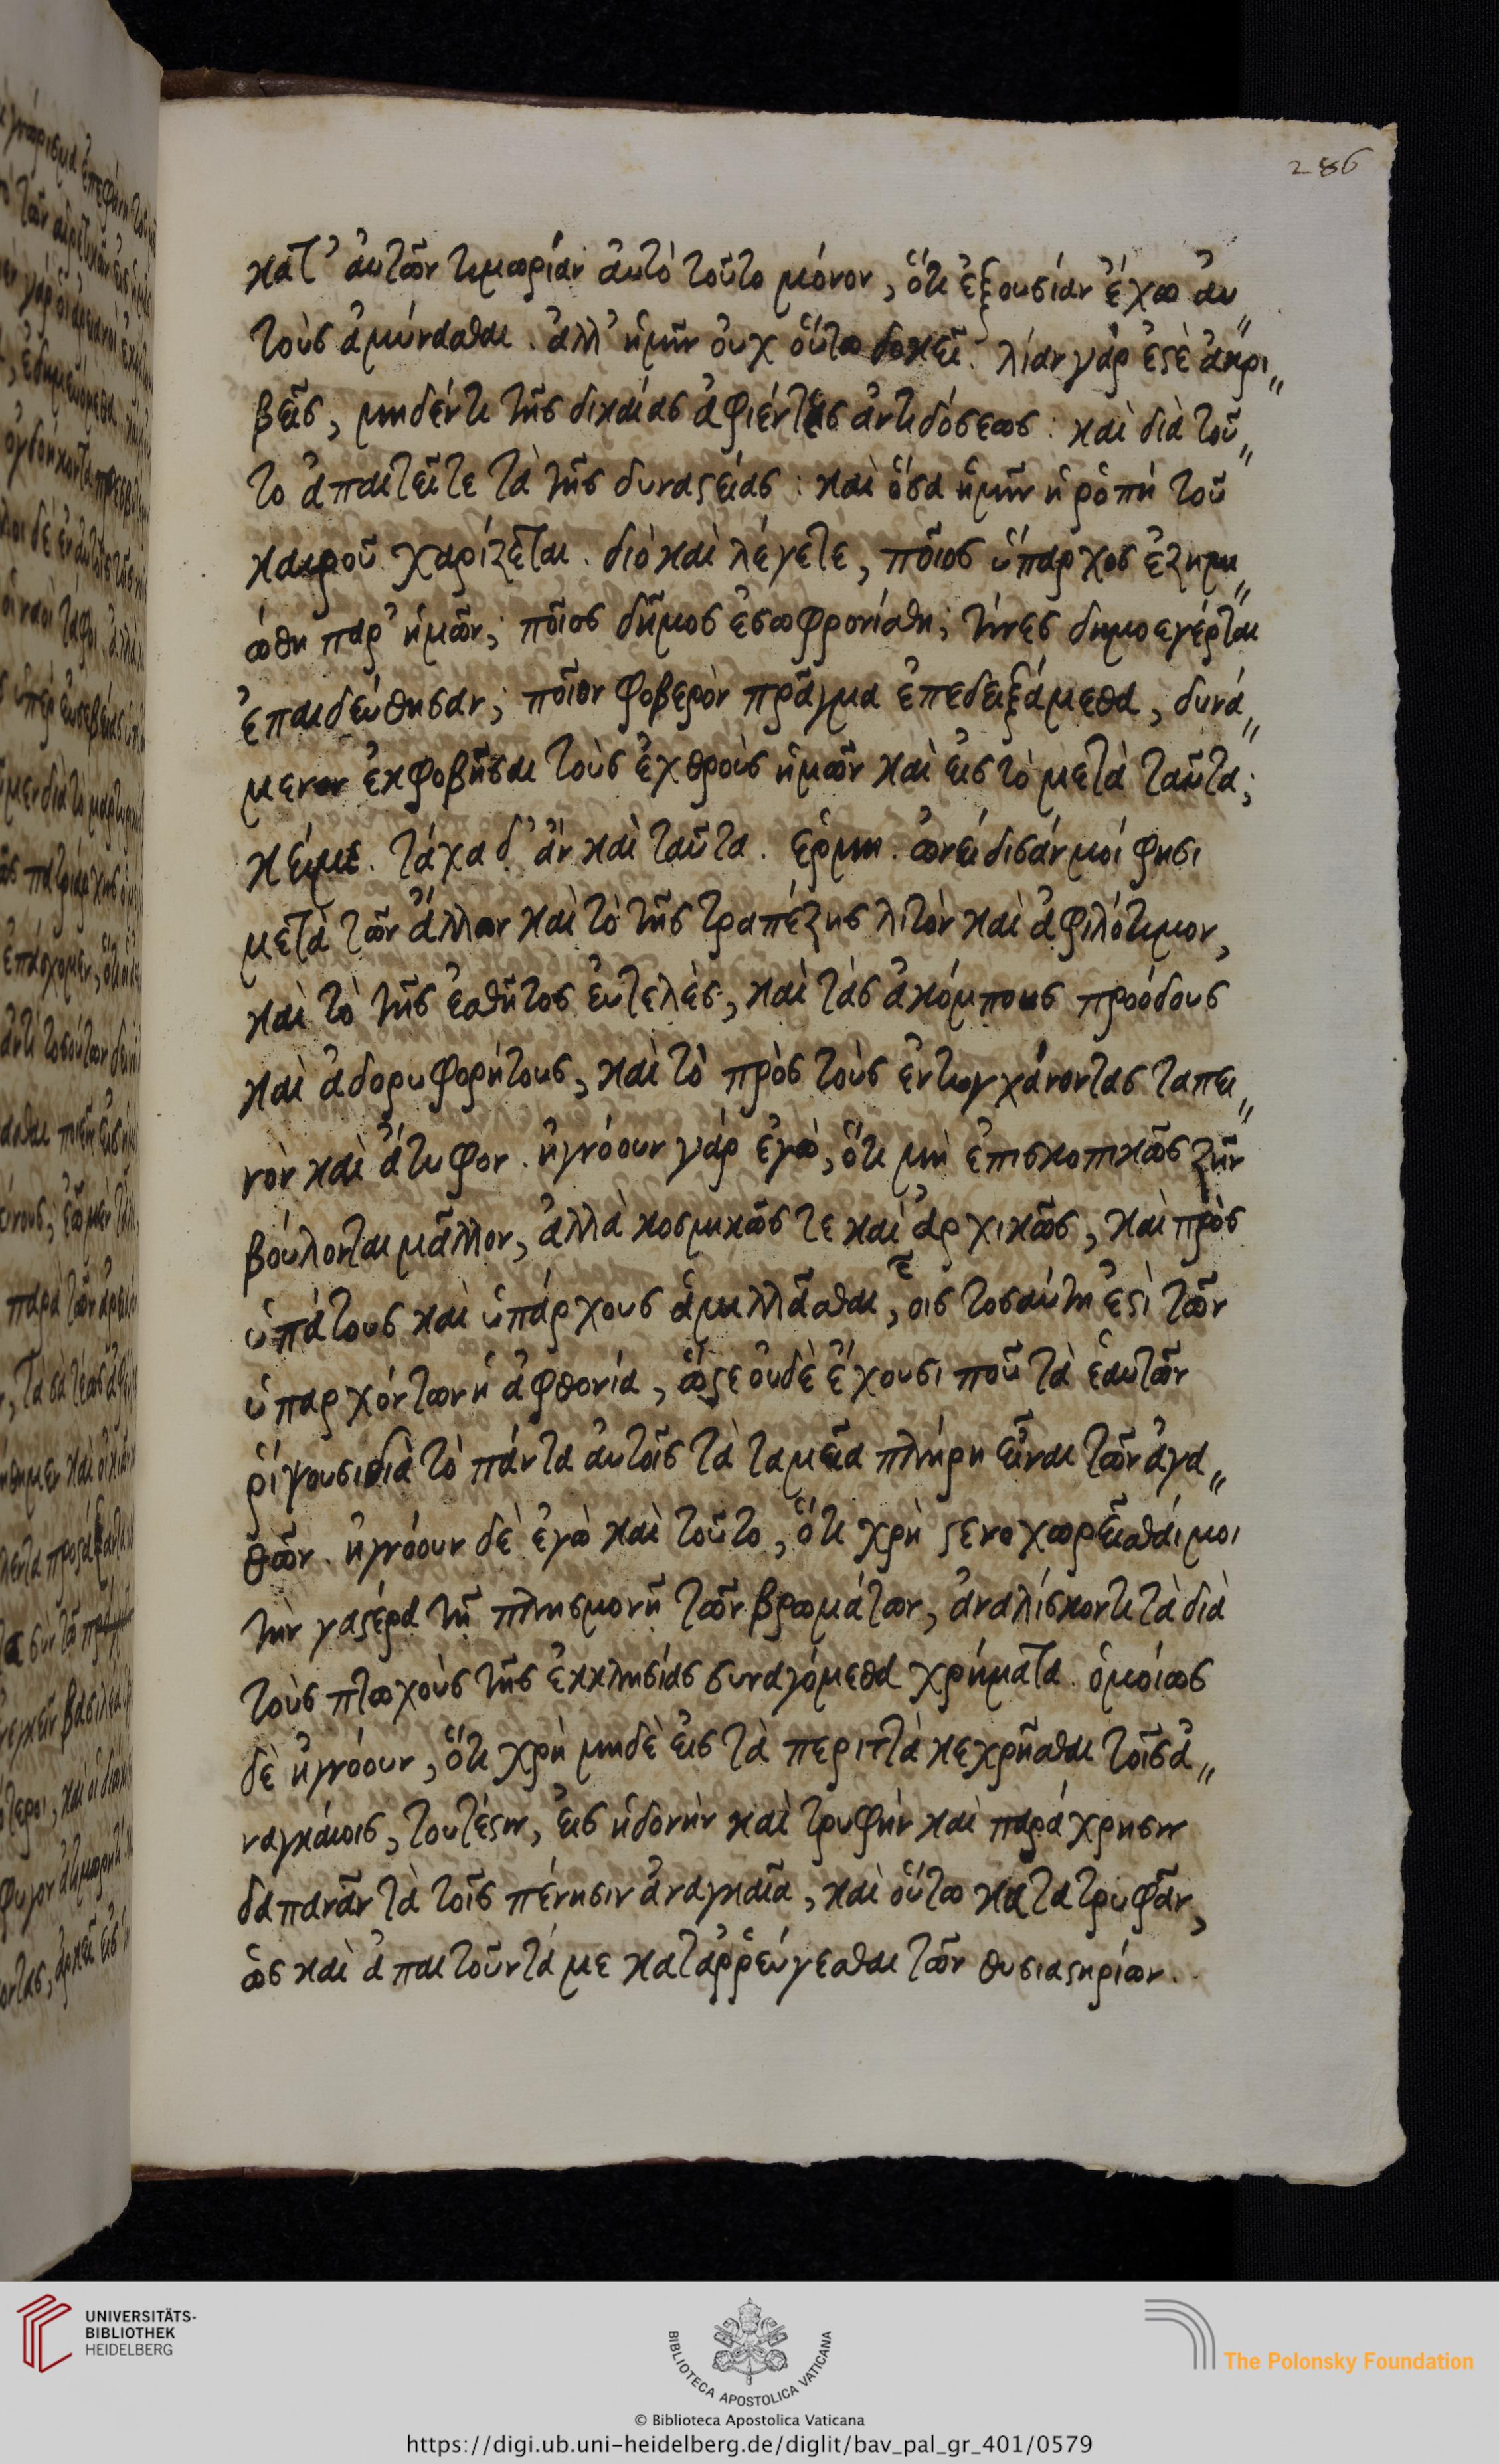 286
κατ' αὐτῶν τιμωρίαν αὐτὸ τοῦτο μόνον, ὅτι ἐξουσίαν ἔχω αὐ„
τοὺς ἀμύνασθαι. ἀλλ' ἡμῖν οὐχ οὕτω δοκεῖ. λίαν γάρ ἐστὲ ἀκρι„
βεῖς, μηδέν τι τῆς δικαίας ἀφιέντες ἀντιδόσεως: καὶ διὰ τοῦ„
το ἀπαιτεῖτε τὰ τῆς δυναστείας: καὶ ὅσα ἡμῖν ἡ ῥοπή τοῦ
καιροῦ χαρίζεται. διὸ καὶ λέγετε, ποῖος ὕπαρχος ἐζημι„
ώθη παρ' ἡμῶν; ποῖος δῆμος ἐσωφρονίσθη; τίνες δημοεγέρται
ἐπαιδεύθησαν; ποῖον φοβερὸν πρᾶγμα ἐπεδειξάμεθα, δυνά„
μενον ἐκφοβῆσαι τοὺς ἐχθροὺς ἡμῶν καὶ εἰς τὸ μετὰ ταῦτα;
κείμε. τάχα δ' ἂν καὶ ταῦτα. ἑρμη. ὠνείδισάν μοί φησι
μετὰ τῶν ἄλλων καὶ τὸ τῆς τραπέζης λιτὸν καὶ ἀφιλότιμον,
καὶ τὸ τῆς ἐσθῆτος εὐτελὲς, καὶ τὰς ἀκόμπους προόδους
καὶ ἀδορυφορήτους, καὶ τὸ πρὸς τοὺς ἐντυγχάνοντας ταπει„
νὸν καὶ ἄτυφον. ἠγνόουν γάρ ἐγὼ, ὅτι μὴ ἐπισκοπικῶς ζῆν
βούλονται μᾶλλον, ἀλλὰ κοσμικῶς τε καὶ ἀρχικῶς, καὶ πρὸς
ὑπάτους καὶ ὑπάρχους ἁμιλλᾶσθαι, οἷς τοσαύτη ἐστὶ τῶν
ὑπαρχόντων ἡ ἀφθονία, ὥστε οὐδὲ ἔχουσι ποῦ τὰ ἑαυτῶν
ῥίψουσι διὰ τὸ πάντα αὐτοῖς τὰ ταμεῖα πλήρη εἶναι τῶν ἀγα„
θῶν. ἠγνόουν δὲ ἐγὼ καὶ τοῦτο, ὅτι χρὴ στενοχωρεῖσθαί μοι
τὴν γαστέρα τῇ πλησμονῇ τῶν βρωμάτων, ἀναλίσκοντι τὰ διὰ
τοὺς πτωχοὺς τῆς ἐκκλησίας συναγόμεθα χρήματα. ὁμοίως
δὲ ἠγνόουν, ὅτι χρὴ μηδὲ εἰς τὰ περιττὰ κεχρῆσθαι τοῖς ἀ„
ναγκαίοις, τουτέστιν, εἰς ἡδονὴν καὶ τρυφὴν καὶ παράχρησιν
δαπανᾶν τὰ τοῖς πένησιν ἀναγκαῖα, καὶ οὕτω κατατρυφᾶν,
ὡς καὶ ἀπαιτοῦντά με καταῤῥεύγεσθαι τῶν θυσιαστηρίων.
UNIVERSITÄTS-
BIBLIOTHEK
HEIDELBERG
BIBLIOTECA APOSTOLICA VATICANA
The Polonsky Foundation
© Biblioteca Apostolica Vaticana
https://digi.ub.uni-heidelberg.de/diglit/bav_pal_gr_401/0579